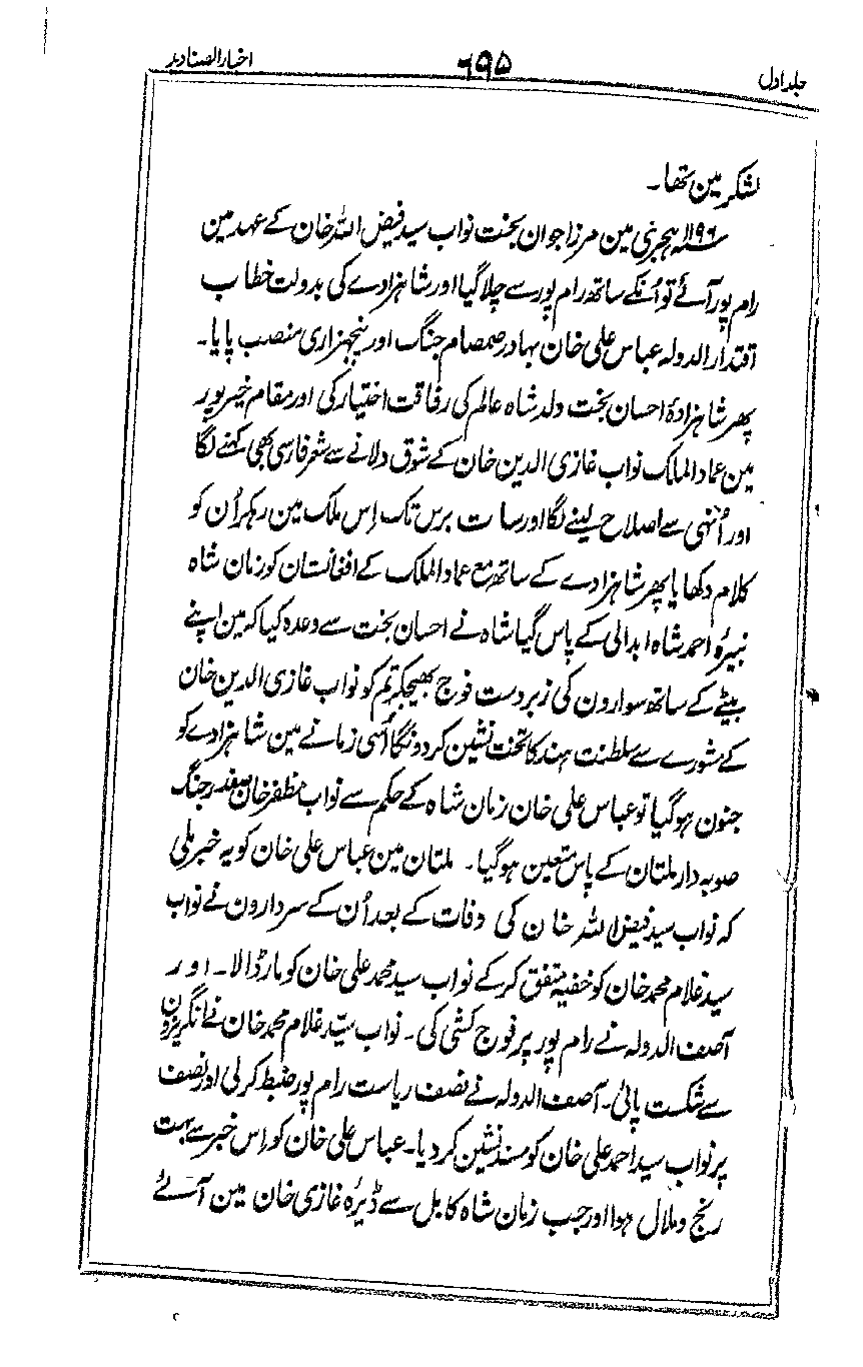 جلد اول
۶۹۵
اخبار الصنادید
لشکر مین تھا۔
سنہ ۱۱۹۶ ہجری مین مرزا جوان بخت نواب سید فیض اللہ خان کے عہد مین
رام پور آئے تو اُنکے ساتھ رام پور سے چلا گیا اور شاہزادے کی بدولت خطاب
اقتدار الدولہ عباس علی خان بہادر صمصام جنگ اور پنجہزاری منصب پایا۔
پھر شاہزادۂ احسان بخت ولد شاہ عالم کی رفاقت اختیار کی اور مقام خیرپور
مین عماد الملک نواب غازی الدین خان کے شوق دلانے سے شعر فارسی بھی کہنے لگا
اور اُنہی سے اصلاح لینے لگا اور سات برس تک اِس ملک مین رہکر اُن کو
کلام دکھایا پھر شاہزادے کے ساتھ مع عماد الملک کے افغانستان کو زمان شاہ
نبیرۂ احمد شاہ ابدالی کے پاس گیا شاہ نے احسان بخت سے وعدہ کیا کہ مین اپنے
بیٹے کے ساتھ سوارون کی زبردست فوج بھیجکر تم کو نواب غازی الدین خان
کے مشورے سے سلطنت ہند کا تخت نشین کردونگا اُسی زمانے مین شاہزادے کو
جنون ہوگیا تو عباس علی خان زمان شاہ کے حکم سے نواب مظفر خان صفدر جنگ
صوبہ دار ملتان کے پاس متعین ہوگیا۔ ملتان مین عباس علی خان کو یہ خبر ملی
کہ نواب سید فیض اللہ خان کی وفات کے بعد اُن کے سردارون نے نواب
سید غلام محمد خان کو خفیہ متفق کرکے نواب سید محمد علی خان کو مار ڈالا۔ اور
آصف الدولہ نے رام پور پر فوج کشی کی۔ نواب سیّد غلام محمد خان نے انگریزون
سے شکست پائی۔ آصف الدولہ نے نصف ریاست رام پور ضبط کرلی اور نصف
پر نواب سید احمد علی خان کو مسند نشین کر دیا۔ عباس علی خان کو اِس خبر سے بہت
رنج و ملال ہوا اور جب زمان شاہ کابل سے ڈیرۂ غازی خان مین آئے